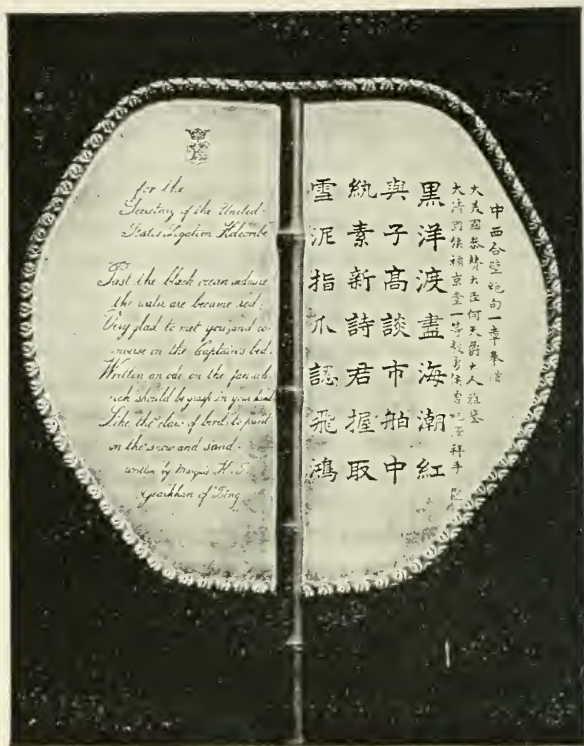 for the
Secretary of the United
States Legation Holcombe
Past the black ocean
the water are became red.
Very glad to met you, and co-
nverse on the Captain's bed.
Written an ode on the fan wh-
ich should be grasp in your hand
Like the claw of bird, to print
on the snow and sand.
written by Marquis H. T.
of Tseng
中西合璧絕句一章奉
大美國參贊大臣何天爵大人雅鑒
大清國候補京堂一等毅勇侯曾紀澤
黑洋渡盡海潮紅
與子高談市舶中
紈素新詩君握取
雪泥指爪認飛鴻